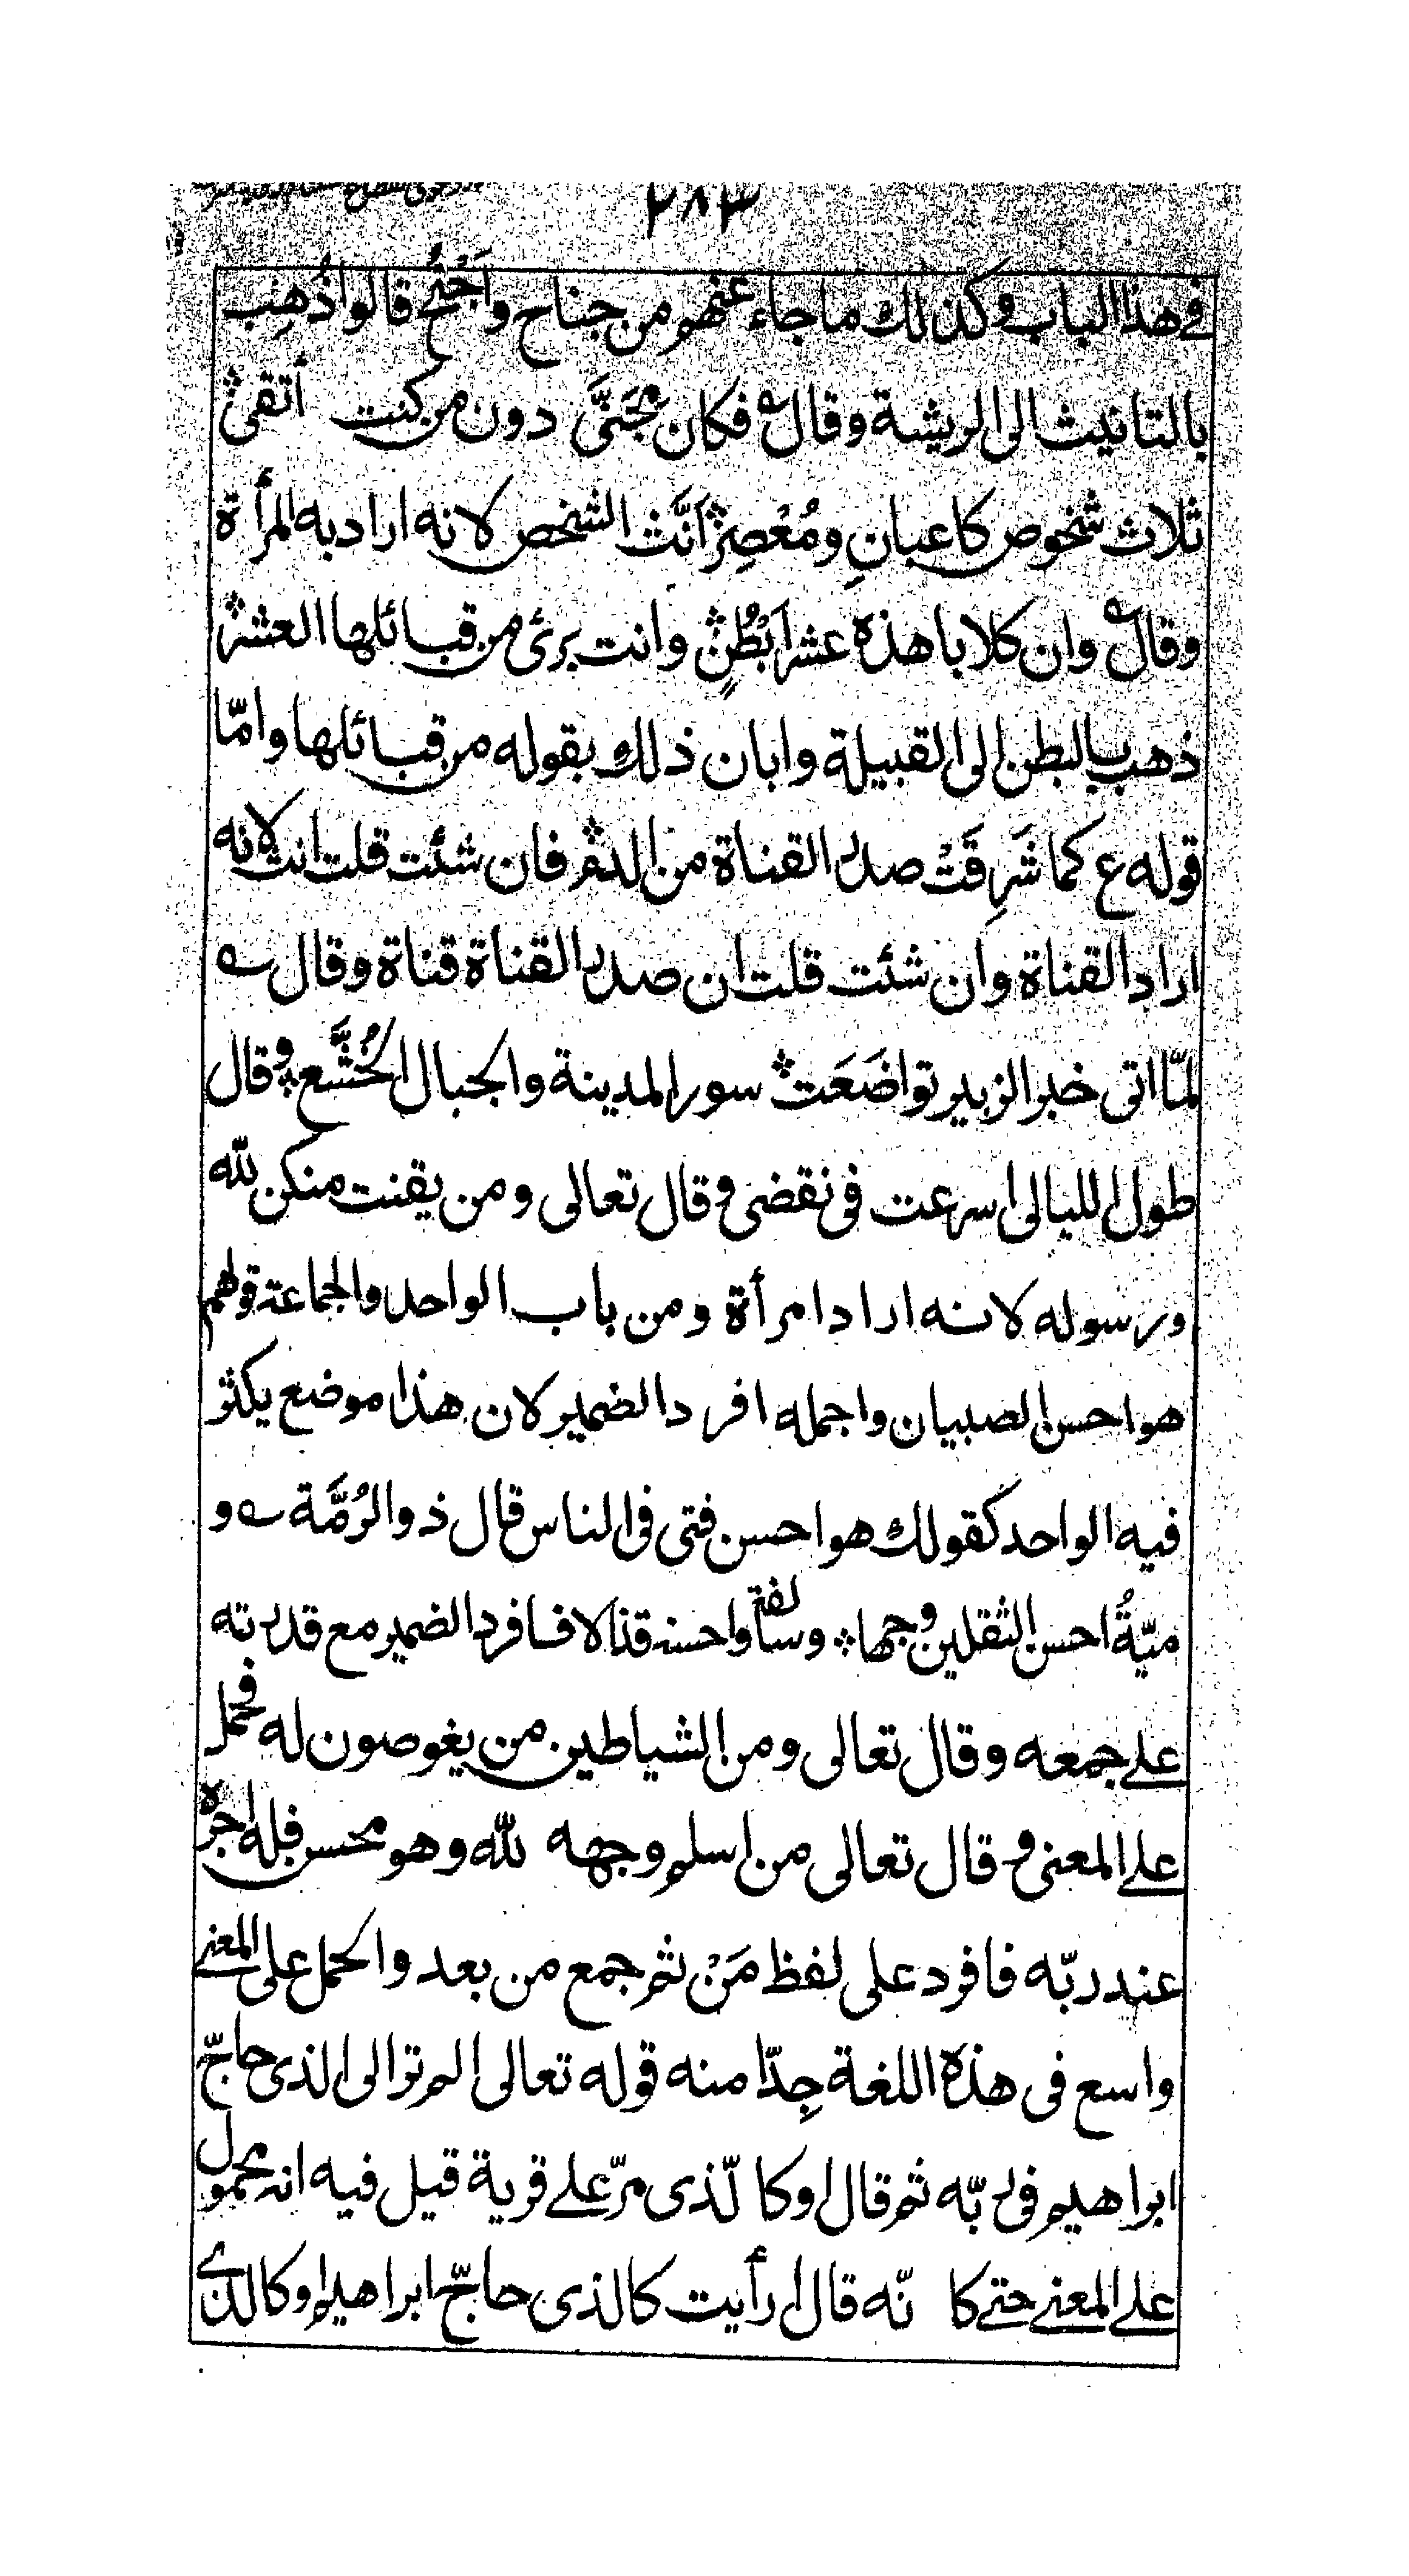 ٢٨٣
في هذا الباب وكذلك ما جاء عنهم من جناح واَجْنُح قالوا ذُهِب
بالتانيث الى الريشة وقال ؎ فكان مِجَنّى دون من كنت أتقى ؞
ثلاث شخوص كاعبانِ ومُعْصِر ؞ اَنَّث الشخص لانه اراد به المرأة
وقال ؎ وان كلابا هذه عشر اَبْطُنٍ ؞ وانت برئ من قبائلها العشر ؞
ذهب بالبطن الى القبيلة وابان ذلك بقوله من قبائلها وامّا
قوله ع كما شَرِقَتْ صدر القناة من الدم ؞ فان شئت قلت انث لانه
اراد القناة وان شئت قلت ان صدر القناة قناة وقال ؎
لمّا اتى خبر الزبير تواضَعَت ؞ سور المدينة والجبال الخُشَّع ؞ وقال
طول الليالى اسرعت فى نقضى وقال تعالى ومن يقنت منكن لله
ورسوله لانه اراد امرأة ومن باب الواحد والجماعة قولهم
هو احسن الصبيان واجمله افرد الضمير لان هذا موضع يكثر
فيه الواحد كقولك هو احسن فتى فى الناس قال ذو الرُمَّة ؎ و
ميّةُ احسن الثقلين وجها ؞ وسالفة واحسنه قذالا فافرد الضمير مع قدرته
على جمعه وقال تعالى ومن الشياطين من يغوصون له فحمل
على المعنى وقال تعالى من اسلم وجهه لله وهو محسن فله اجره
عند ربّه فافرد على لفظ مَنْ ثم جمع من بعد والحمل على المعنى
واسع فى هذه اللغة جِدّا منه قوله تعالى الم تر الى الذى حاجّ
ابراهيم فى ربّه ثم قال او كا لّذى مرّ على قرية قيل فيه انه محمول
على المعنى حتى كا نّه قال ارأيت كالذى حاجّ ابراهيم او كالذى